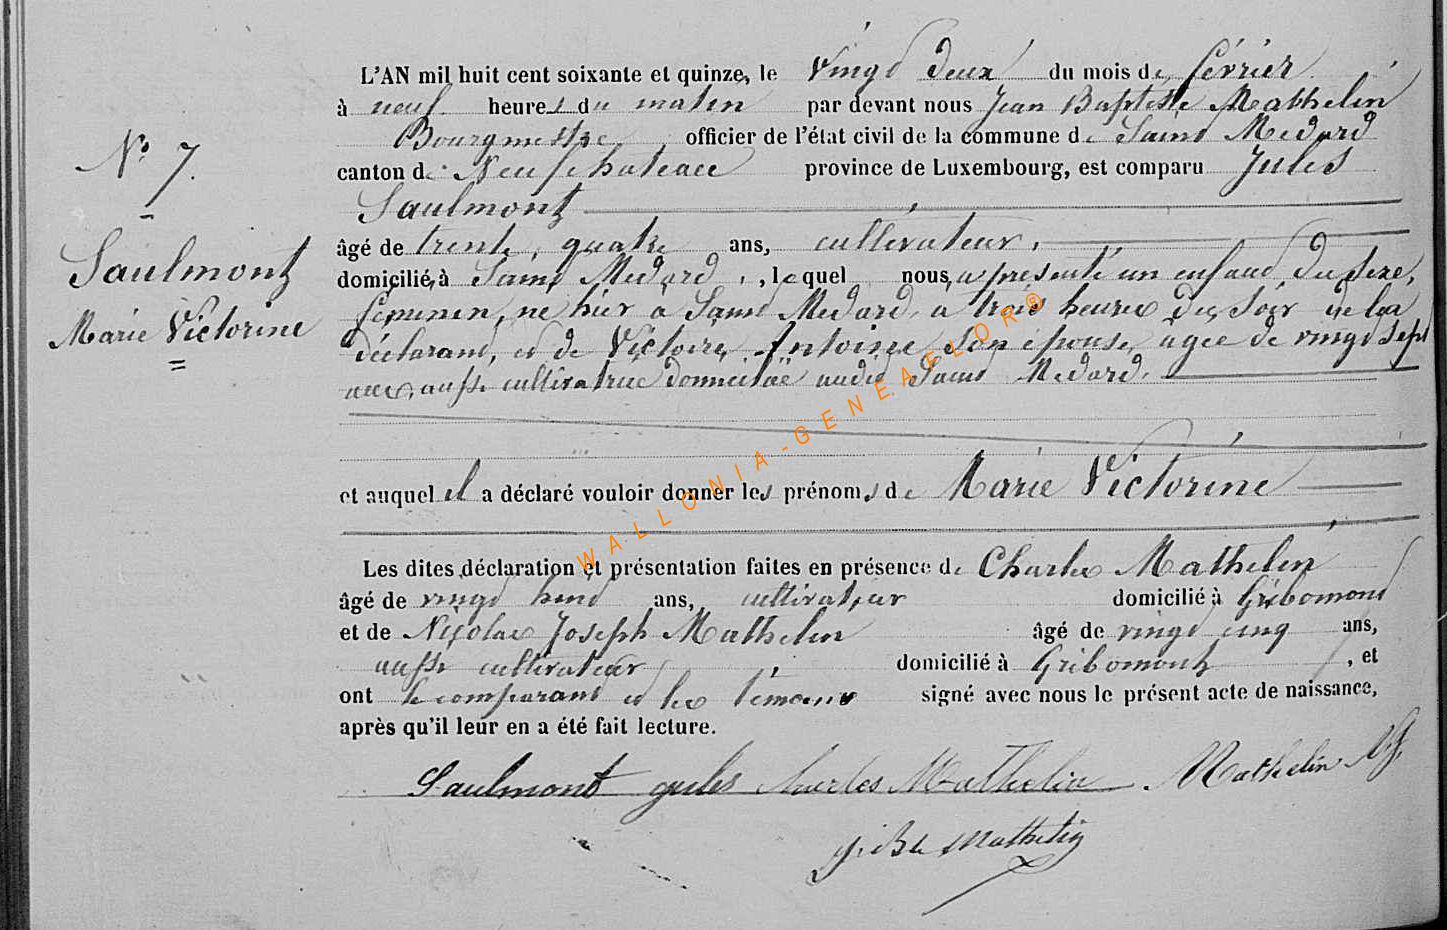 L'AN mil huit cent soixante et quinze, le vingt deux du mois de février
à neuf heures du matin par devant nous Jean Baptiste Mathelin
Bourgmestre officier de l'état civil de la commune de Saint Médard
N° 7.
canton de Neufchateau province de Luxembourg, est comparu Jules
Saulmont
Saulmont
Marie Victorine
âgé de trente quatre ans, cultivateur,
domicilié, à Saint Médard, lequel nous a présenté un enfant du sexe
féminin, né hier à Saint Médard, à trois heures du soir de lui
déclarant, et de Victoire Antoine son épouse, agée de vingt sept
ans, aussi cultivatrice domiciliée audit Saint Médard.
WALLONIA-GENEAFLOR®
et auquel il a déclaré vouloir donner les prénoms de Marie Victorine
Les dites déclaration et présentation faites en présence de Charles Mathelin
âgé de vingt huit ans, cultivateur domicilié à Gribomont
et de Nicolas Joseph Mathelin âgé de vingt cinq ans,
aussi cultivateur domicilié à Gribomont, et
ont le comparant et les témoins signé avec nous le présent acte de naissance,
après qu'il leur en a été fait lecture.
Saulmont jules Charles Mathelin Mathelin NJ
J. Bte Mathelin